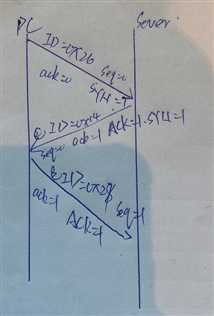 PC Sever.
ID=0x26
ack=0 Seq=0
SYN=1
ID=0x14 ack=1 ACK=1 SYN=1
Seq=0
ack=1 Seq=1
ACK=1